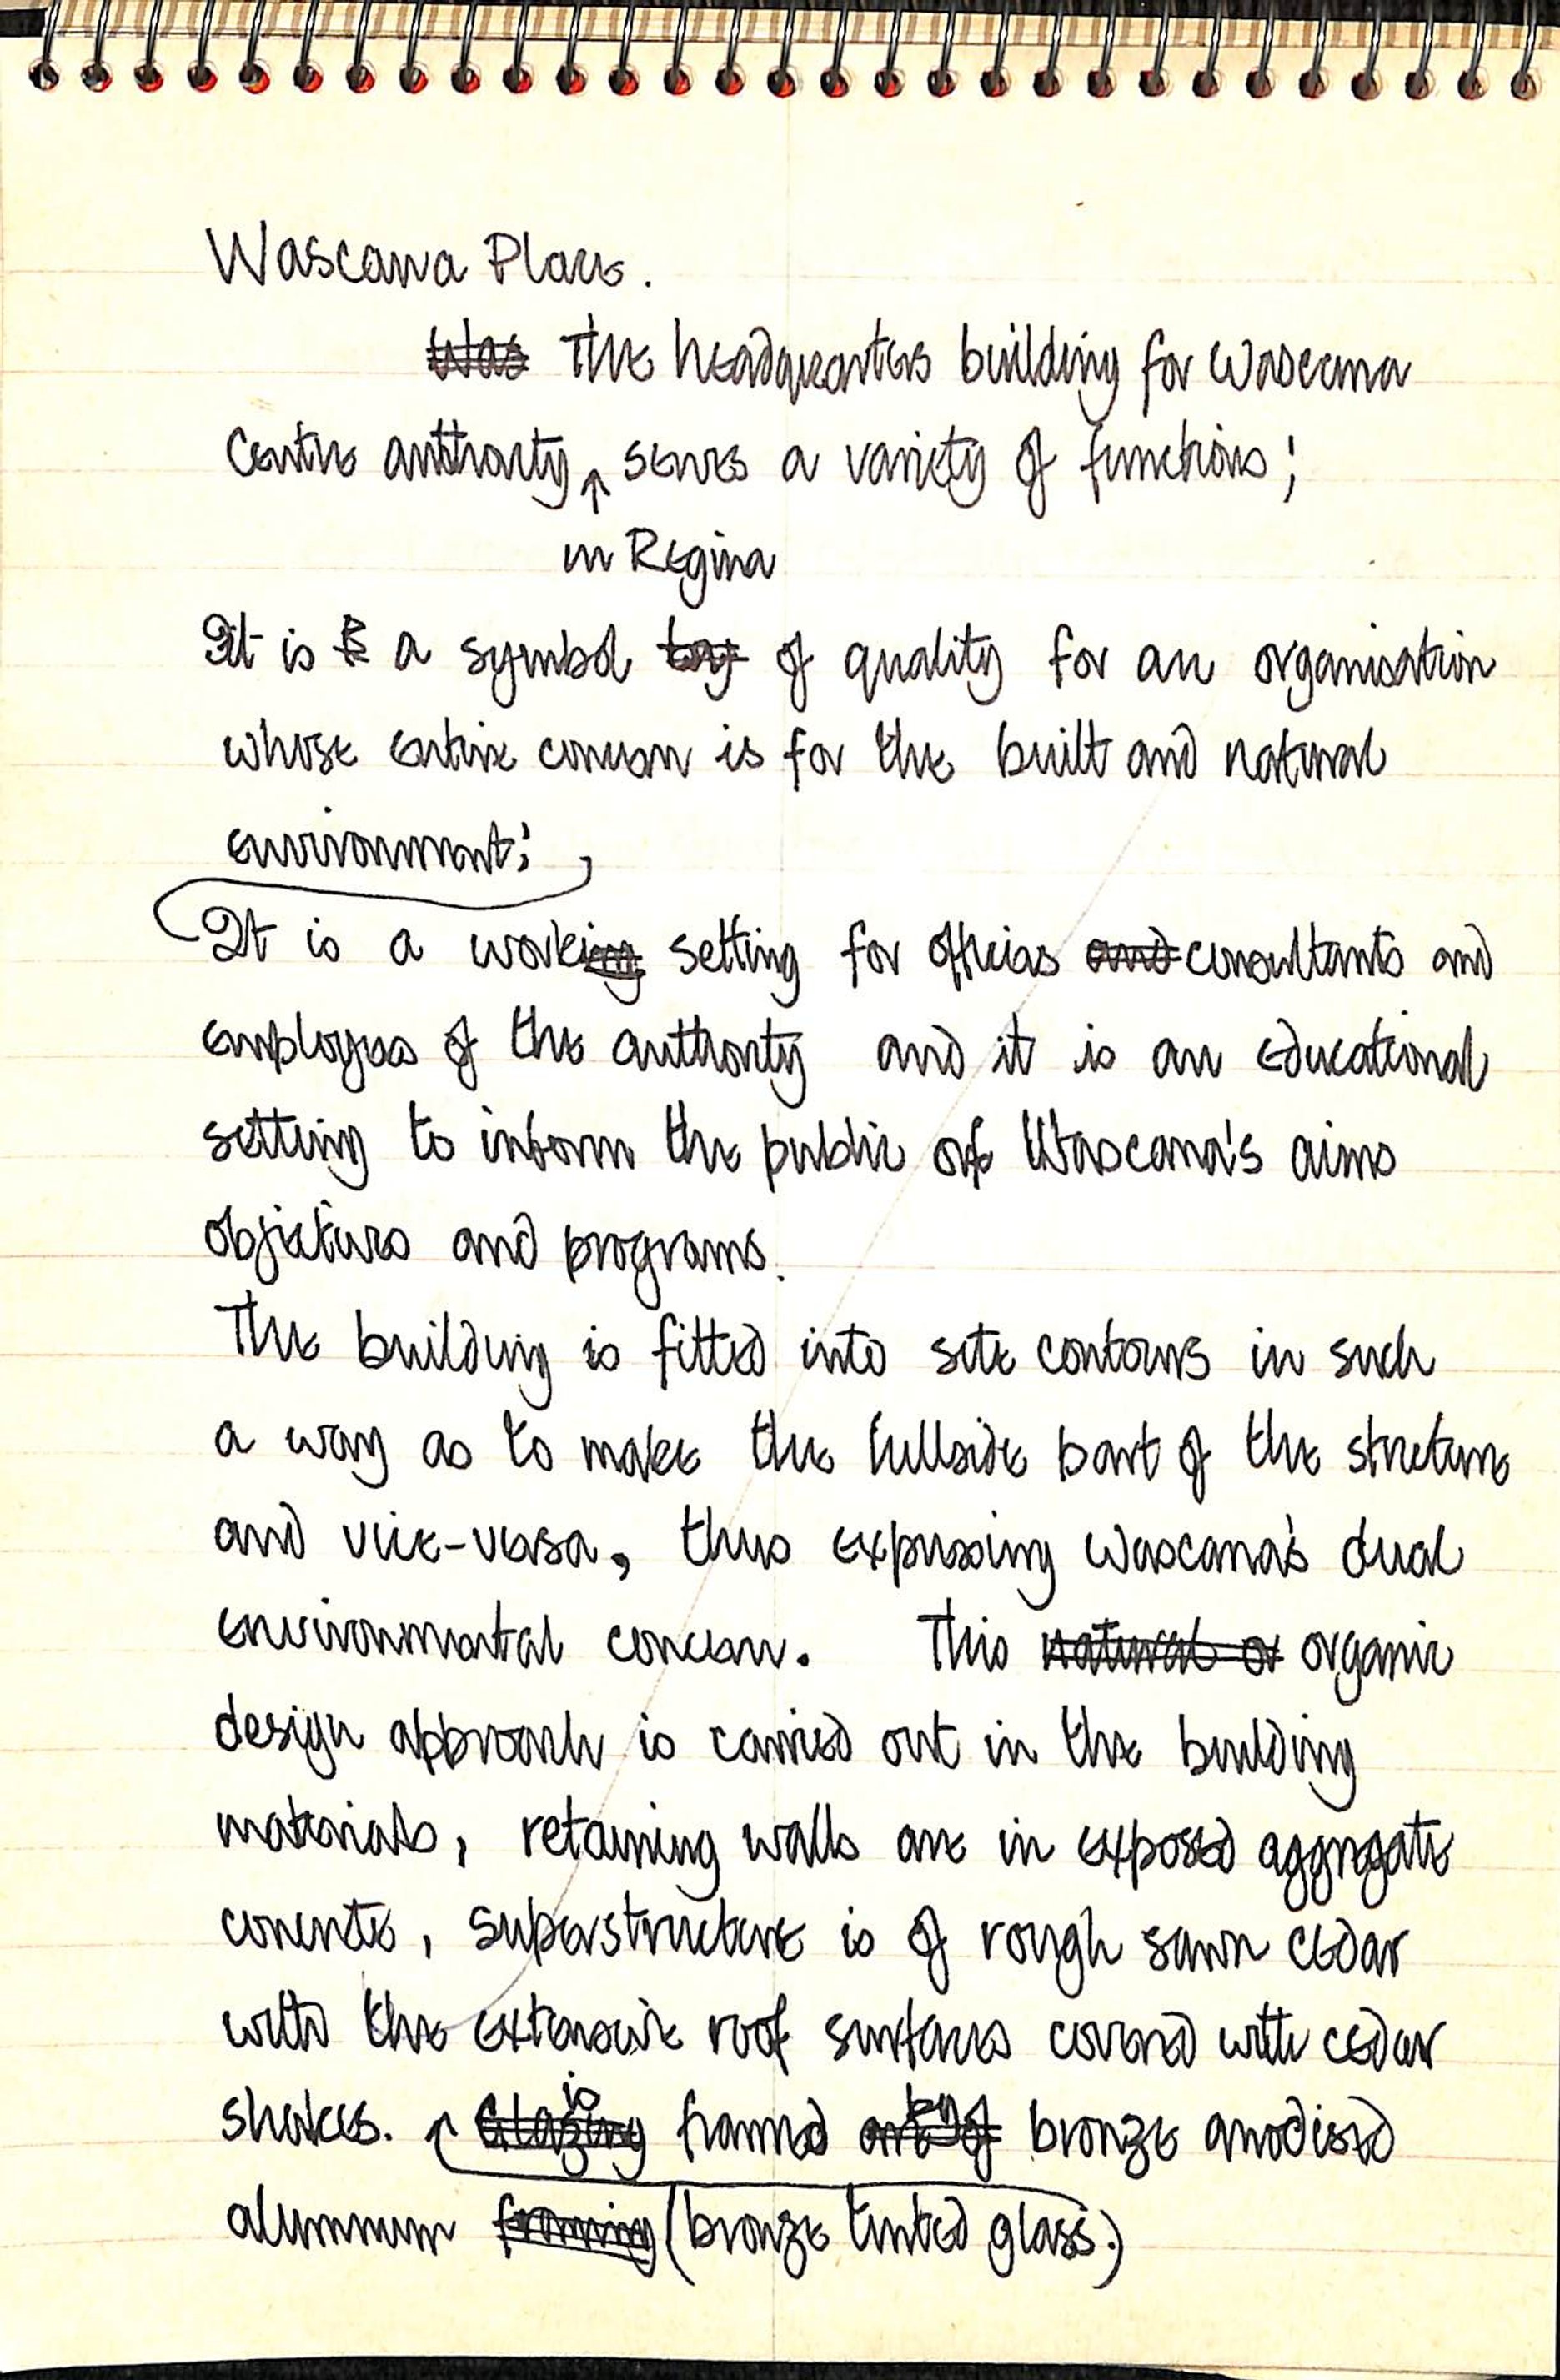 Wascana Place.
Was The headquarters building for Wascana
Centre authority ↑ serves a variety of functions;
in Regina
It is a symbol of quality for an organisation
whose entire concern is for the built and natural
environment;
It is a working setting for offices and consultants and
employees of the authority and it is an educational
setting to inform the public of Wascana's aims
objectives and programs.
The building is fitted into site contours in such
a way as to make the hillside part of the structure
and vice-versa, thus expressing Wascana's dual
environmental concern. This natural or organic
design approach is carried out in the building
materials, retaining walls are in exposed aggregate
concrete, superstructure is of rough sawn cedar
with the extensive roof surfaces covered with cedar
is by
shakes. Glazing framed out of bronze anodised
aluminum framing (bronze tinted glass.)